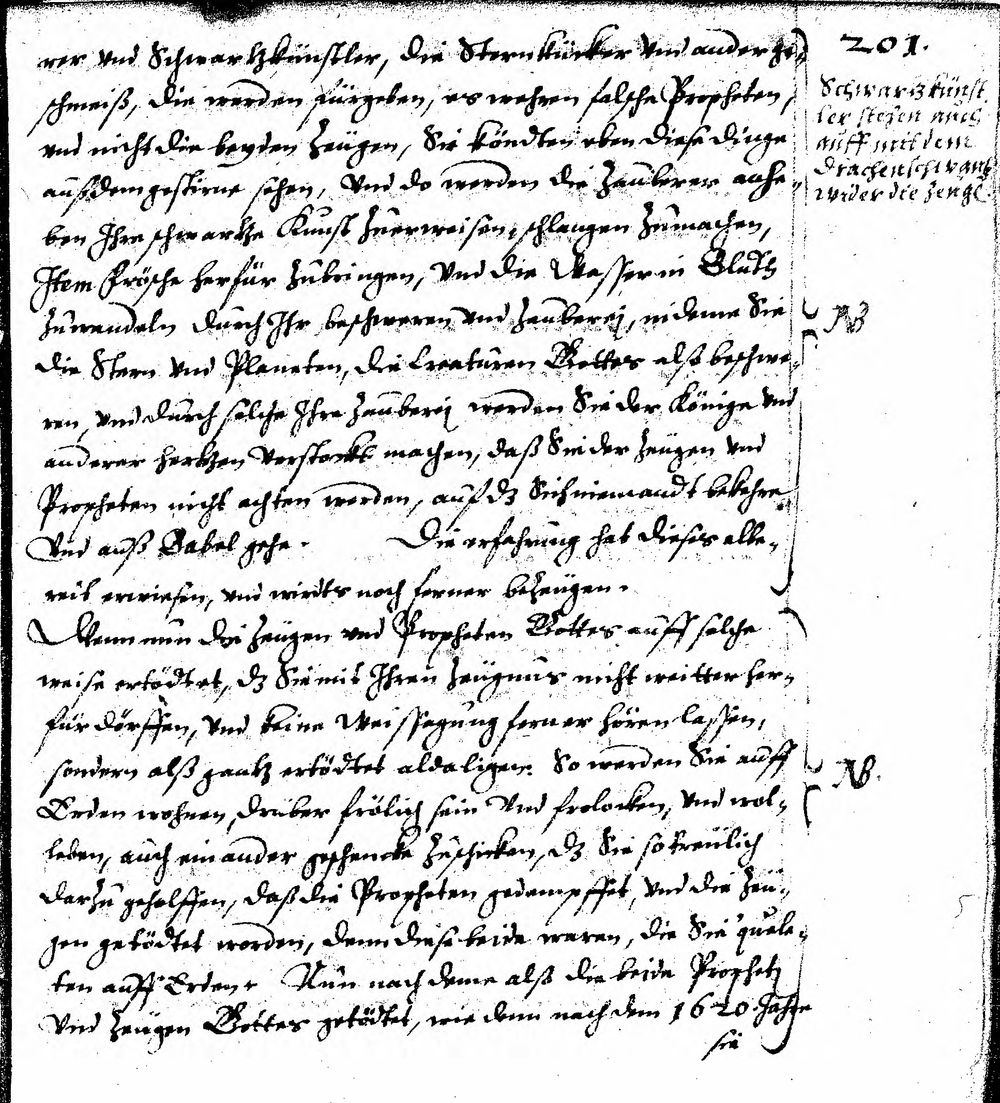 201.
rer vnd Schwartzkünstler, die Sternkücker vnd ander ge-
schmeiß, die werden fürgeben, es wehren falsche Propheten,
vnd nicht die beyden Zeugen, Sie köndten eben diese dinge
auß dem gestirne sehen, Vnd do werden die Zauberer anhe-
ben Ihre schwartze Kunst zuerweisen, schlangen zumachen,
Item frösche herfür zubringen, Vnd die Wasser in Bluth
zuwandeln durch Ihr beschweren vnd Zauberej, in deme Sie
die Stern vnd Planeten, die Creaturen Gottes alß beschwe-
ren, vnd durch solche Ihre Zauberej werden Sie der Könige vnd
anderer hertzen verstockt machen, daß Sie der Zeugen vnd
Propheten nicht achten werden, auf dz Sich niemandt bekehre
Vnd auß Babel gehe. Die erfahrung hat dieses alle-
reit erwiesen, vnd wirdts noch ferner bezeugen.
Wenn nun die Zeugen vnd Propheten Gottes auff solche
weise ertödtet, dz Sie mit Ihren Zeugnus nicht weitter her-
für dörffen, Vnd keine Weissagung ferner hören lassen,
sondern alß gantz ertödtet aldaligen. So werden Sie auff
Erden wohnen, drüber frölich sein Vnd frolocken, vnd wol-
leben, auch einander geschencke zuschicken, dz Sie so treulich
darzu geholffen, daß die Propheten gedempffet, vnd die Zeu-
gen getödtet worden, denn diese beide waren, die Sie quele-
ten auff Erden. Nun nach deme alß die beide Prophetē
Vnd Zeugen Gottes getödtet, wie denn nach dem 1620. Jahre
sie
Schwartzkünst
ler stehen auch
auff mit dem
Drachenschwantz
wider die Zeuge
NB
NB.